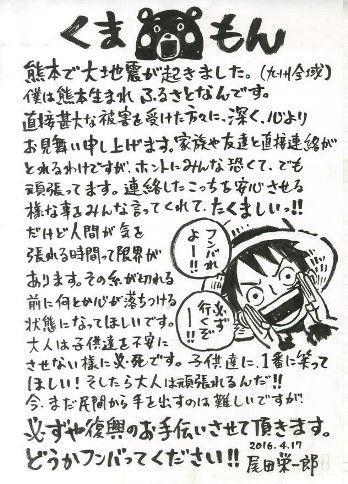 くま もん
熊本で大地震が起きました。(九州全域)
僕は熊本生まれ ふるさとなんです。
直接甚大な被害を受けた方々に、深く、心より
お見舞い申し上げます。家族や友達と直接連絡が
とれるわけですが、ホントにみんな恐くて、でも
頑張ってます。連絡したこっちを安心させる
様な事をみんな言ってくれて、たくましいっ!!
だけど人間が気を
張れる時間って限界が
あります。その糸が切れる
前に何とか心が落ちつける
状態になってほしいです。
大人は子供達を不安に
させない様に必死です。子供達に、1番に笑って
ほしい!そしたら大人は頑張れるんだ!!
今、まだ民間から手を出すのは難しいですが
必ずや復興のお手伝いさせて頂きます。
どうかフンバってください!!
2016.4.17
尾田栄一郎
フンバれ
よー!!
必ず
行くぞ